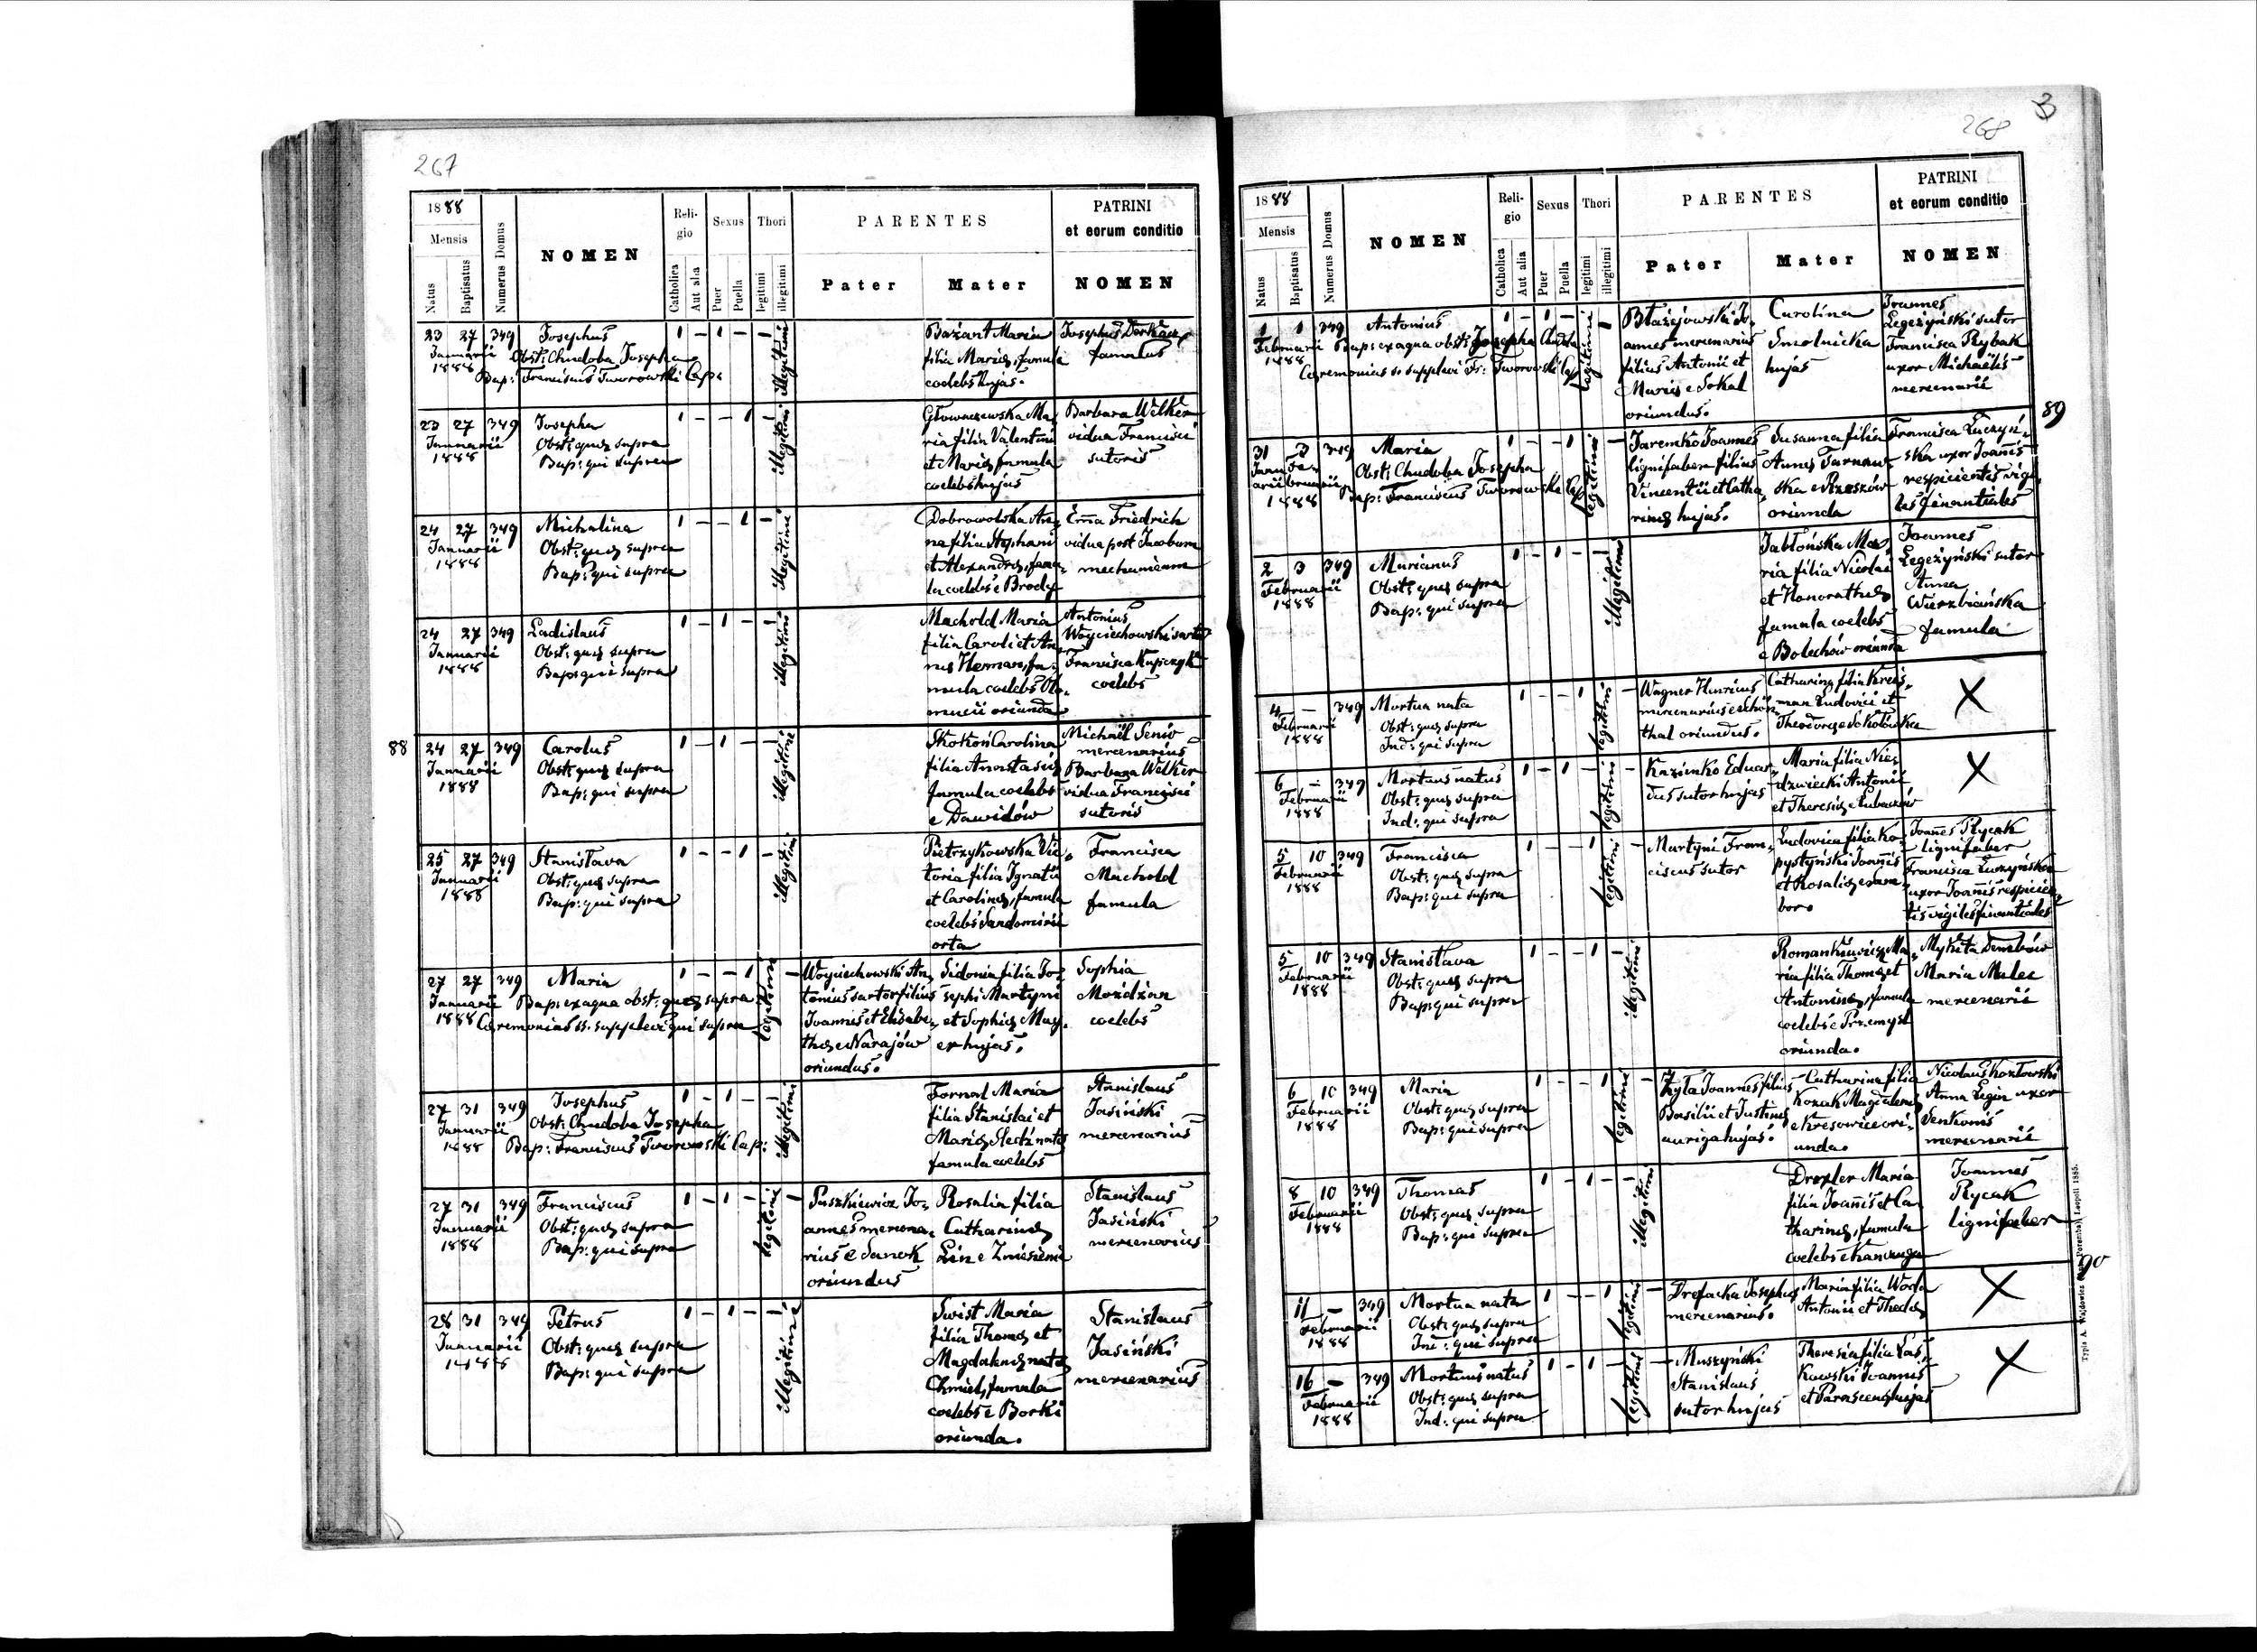 267
1888
Mensis
Natus
Baptisatus
Numerus Domus
NOMEN
Religio
Catholica
Aut alia
Sexus
Puer
Puella
Thori
legitimi
illegitimi
PARENTES
Pater
Mater
PATRINI
et eorum conditio
NOMEN
23 27 349 Josephus
Januarii Obst: Chudoba Josepha
1888 Bap: Franciscus Tworowski Cap:
1 – 1 – – illegitimi
Bażant Maria
filia Mariæ, famula
coelebs hujas.
Josephus
famulus
23 27 349 Josepha
Januarii Obst: quæ supra
1888 Bap: qui supra
1 – – 1 – illegitimi
Głowaczewska Ma-
ria filia Valentini
et Mariæ, famula
coelebs hujas
Barbara Welker
vidua Francisci
sutoris
24 27 349 Michalina
Januarii Obst: quæ supra
1888 Bap: qui supra
1 – – 1 – illegitimi
Dobrowolska An-
na filia Stephani
et Alexandræ, famu-
la coelebs e Brody
Emma Friedrich
vidua post Jacobum
mechanicum
24 27 349 Ladislaus
Januarii Obst: quæ supra
1888 Bap: qui supra
1 – 1 – – illegitimi
Machold Maria
filia Caroli et An-
næ Herman, fa-
mula coelebs Olo-
mucii oriunda
Antonius
Woyciechowski sartor
Francisca
coelebs
88
24 27 349 Carolus
Januarii Obst: quæ supra
1888 Bap: qui supra
1 – 1 – – illegitimi
Skokoń Carolina
filia Anastasiæ
famula coelebs
e Dawidów
Michaël Seniw
mercenarius
Barbara Welker
vidua Francisci
sutoris
25 27 349 Stanisława
Januarii Obst: quæ supra
1888 Bap: qui supra
1 – – 1 – illegitimi
Pietrzykowska Vic-
toria filia Ignatii
et Carolinæ, famula
coelebs Sandomirii
orta
Francisca
Machold
famula
27 27 349 Maria
Januarii Bap: ex aqua obst: quæ supra
1888 Cæremonias ss. supplevi qui supra
1 – – 1 legitimi –
Woyciechowski An-
tonius sartor filius
Joannis et Elisabe-
thæ e Narajów
oriundus.
Sidonia filia Jo-
sephi Martyni
et Sophiæ May-
er hujas.
Sophia
Moździan
coelebs
27 31 349 Josephus
Januarii Obst: Chudoba Josepha
1888 Bap: Franciscus Tworowski Cap:
1 – 1 – – illegitimi
Fornal Maria
filia Stanislai et
Mariæ Śledź natæ
famula coelebs
Stanislaus
Jasiński
mercenarius
27 31 349 Franciscus
Januarii Obst: quæ supra
1888 Bap: qui supra
1 – 1 – legitimi –
Puszkiewicz Jo-
annes mercena-
rius e Sanok
oriundus
Rosalia filia
Catharinæ
Lin e Zniesienie
Stanislaus
Jasiński
mercenarius
28 31 349 Petrus
Januarii Obst: quæ supra
1888 Bap: qui supra
1 – 1 – – illegitimi
Świst Maria
filia Thomæ et
Magdalenæ natæ
Chmiel, famula
coelebs e Borki
oriunda.
Stanislaus
Jasiński
mercenarius
3
268
1888
Mensis
Natus
Baptisatus
Numerus Domus
NOMEN
Religio
Catholica
Aut alia
Sexus
Puer
Puella
Thori
legitimi
illegitimi
PARENTES
Pater
Mater
PATRINI
et eorum conditio
NOMEN
1 1 349 Antonius
Februarii Bap: ex aqua obst: Josepha Chudoba
1888 Cæremonias ss supplevi Fr: Tworowski Cap
1 – 1 – legitimi –
Błażejowski Jo-
annes mercenarius
filius Antonii et
Mariæ e Sokal
oriundus.
Carolina
Smolnicka
hujas
Joannes
Legeżyński sutor
Francisca Rybak
uxor Michaëlis
mercenarii
89
31 3 349 Maria
Januarii Februarii Obst: Chudoba Josepha
1888 Bap: Franciscus Tworowski Cap
1 – – 1 legitimi –
Jaremko Joannes
lignifaber filius
Vincentii et Catha-
rinæ hujas.
Susanna filia
Annæ Tarnaw-
ska e Rzeszów
oriunda
Francisca Łuczyń-
ska uxor Joannis
respicientis vigi-
les finantiales
2 3 349 Marianus
Februarii Obst: quæ supra
1888 Bap: qui supra
1 – 1 – – illegitimi
Jabłońska Ma-
ria filia Nicolai
et Honorathæ
famula coelebs
e Bolechów oriunda
Joannes
Legeżyński sutor
Anna
Wierzbiańska
famula
4 – 349 Mortua nata
Februarii Obst: quæ supra
1888 Ind: qui supra
1 – – 1 legitimi –
Wagner Henricus
mercenarius e Schön-
thal oriundus.
Catharina filia Kreis-
man Ludovici et
Theodoræ e Sokołówka
X
6 – 349 Mortuus natus
Februarii Obst: quæ supra
1888 Ind: qui supra
1 – 1 – legitimi –
Kazienko Eduar-
dus sutor hujas
Maria filia Nie-
dzwiecki Antonii
et Theresiæ e Lubaczów
X
5 10 349 Francisca
Februarii Obst: quæ supra
1888 Bap: qui supra
1 – – 1 legitimi –
Martyni Fran-
ciscus sutor
Ludovica filia Ko-
pystyński Joannis
et Rosaliæ e Sam-
bor.
Joannes Rycak
lignifaber
Francisca Łuczyńska
uxor Joannis respicien-
tis vigiles finantiales
5 10 349 Stanisława
Februarii Obst: quæ supra
1888 Bap: qui supra
1 – – 1 – illegitimi
Romankiewicz Ma-
ria filia Thomæ et
Antoninæ, famula
coelebs e Przemyśl
oriunda.
Mykita Dembów
Maria Malec
mercenarii
6 10 349 Maria
Februarii Obst: quæ supra
1888 Bap: qui supra
1 – – 1 legitimi –
Żyła Joannes filius
Basilii et Justinæ
auriga hujas.
Catharina filia
Kozak Magdalenæ
e Kresowice ori-
unda.
Nicolaus Kozłowski
Anna Legin uxor
Senkonis
mercenarii
8 10 349 Thomas
Februarii Obst: quæ supra
1888 Bap: qui supra
1 – 1 – – illegitimi
Drexler Maria
filia Joannis et Ca-
tharinæ, famula
coelebs e Kanczuga
Joannes
Rycak
lignifaber
90
11 – 349 Mortua nata
Februarii Obst: quæ supra
1888 Ind: qui supra
1 – – 1 legitimi –
Drefacka Josephus
mercenarius.
Maria filia Woda
Antonii et Theclæ
X
16 – 349 Mortuus natus
Februarii Obst: quæ supra
1888 Ind: qui supra
1 – 1 – legitimi –
Muszyński
Stanislaus
sutor hujas
Theresia filia Łas-
kowski Joannis
et Parascevæ hujas
X
Leopoli 1885.